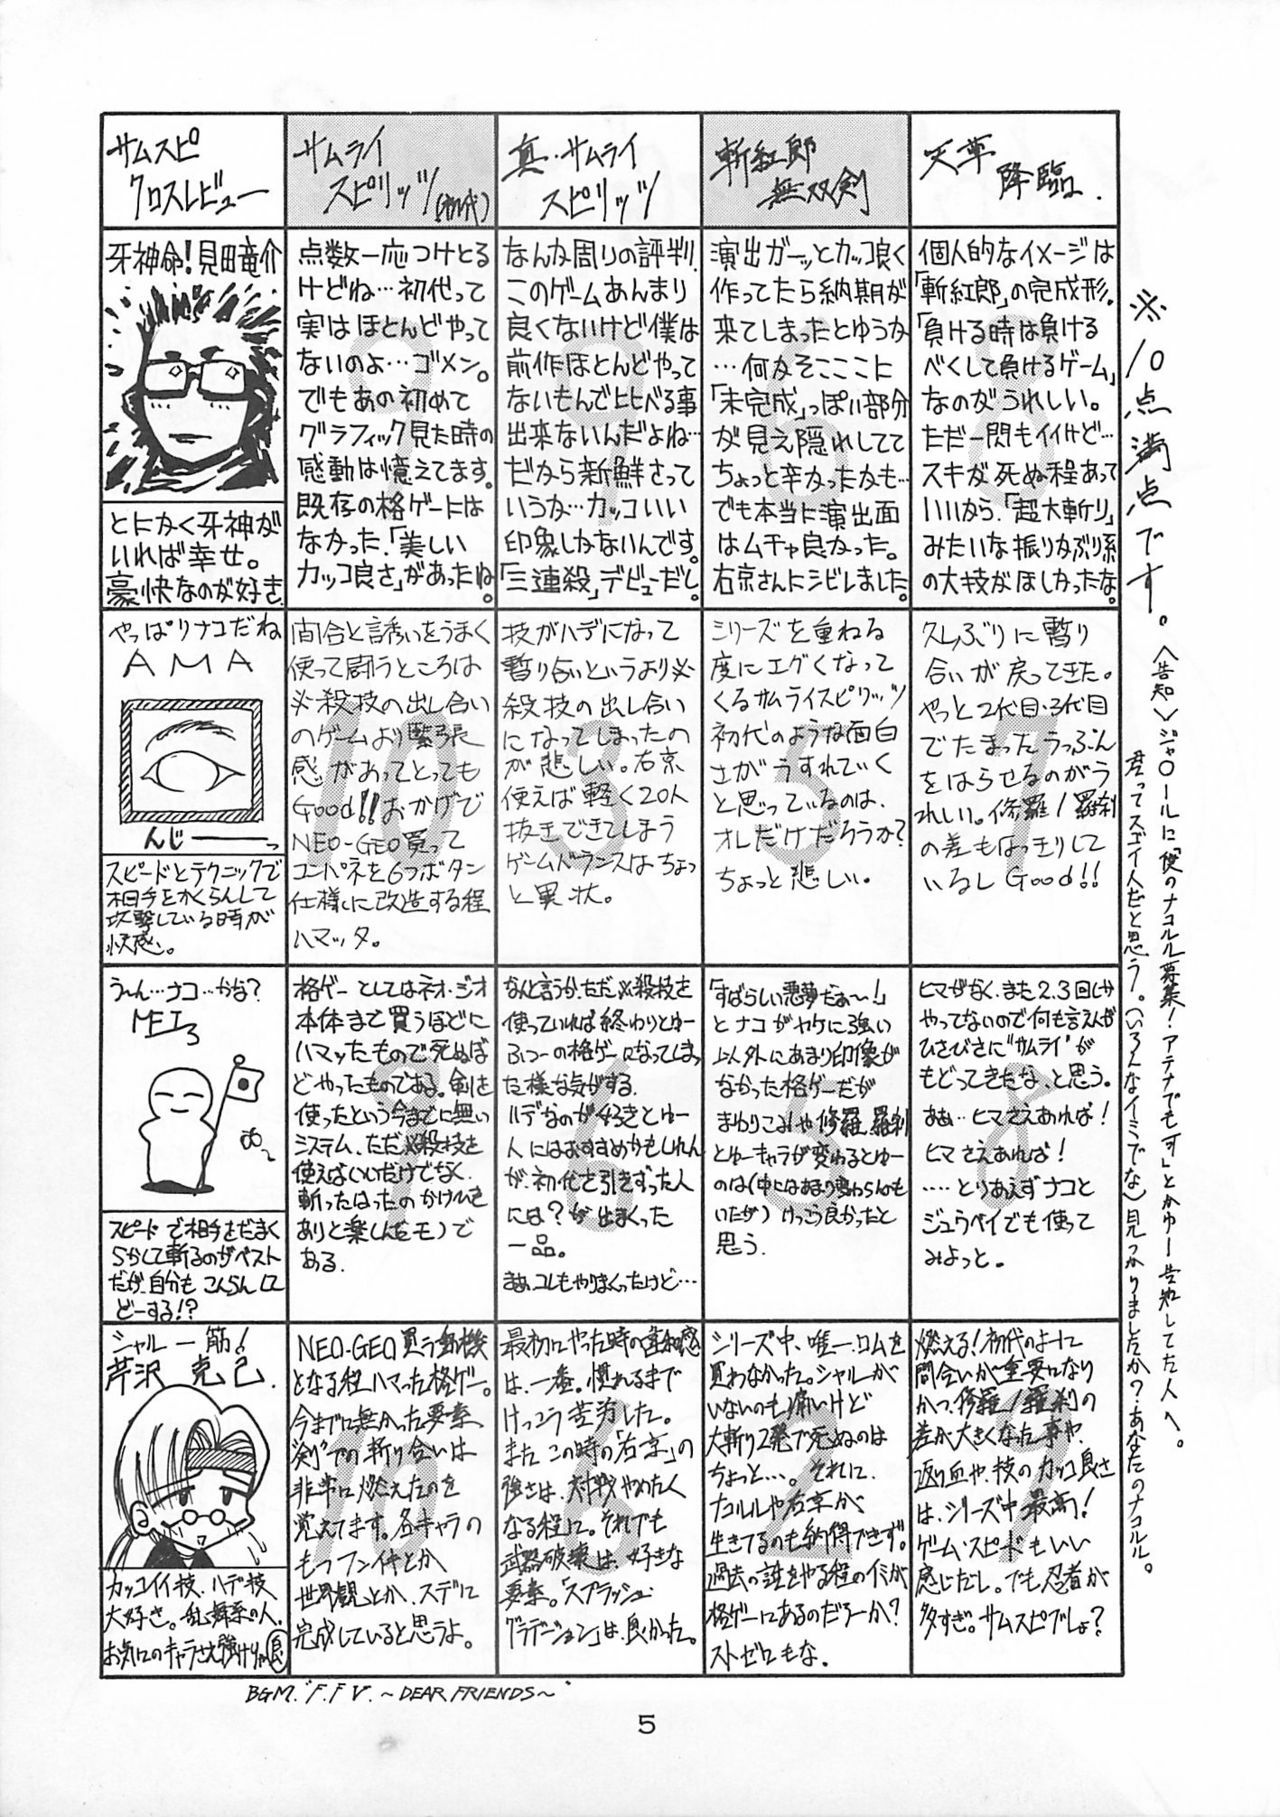 サムスピ
クロスレビュー
サムライ
スピリッツ(初代)
真・サムライ
スピリッツ
斬紅郎
無双剣
天草
降臨
牙神命!見田竜介
とにかく牙神が
いれば幸せ。
豪快なのが好き
点数一応つけとる
けどね…初代って
実はほとんどやって
ないのよ…ゴメン。
でもあの初めて
グラフィック見た時の
感動は憶えてます。
既存の格ゲーには
なかった、「美しい
カッコ良さ」があったね。
9
なんか周りの評判、
このゲームあんまり
良くないけど僕は
前作ほとんどやって
ないもんで比べる事
出来ないんだよね…
だから新鮮さって
いうか…カッコいい
印象しかないんです。
「三連殺」デビューだし。
9
演出ガーッとカッコ良く
作ってたら納期が
来てしまったとゆうか
…何かそこここに
「未完成」っぽい部分
が見え隠れしてて
ちょっと辛かったかも…
でも本当に演出面
はムチャ良かった。
右京さんにシビレました。
6
個人的なイメージは
「斬紅郎」の完成形。
「負ける時は負ける
べくして負けるゲーム」
なのがうれしい。
ただ一閃もイイけど…
スキが死ぬ程あって
いいから、「超大斬り」
みたいな振りかぶり系
の大技がほしかったな。
8
やっぱりナコだね
AMA
んじーーっ
スピードとテクニックで
相手をかくらんして
攻撃している時が
快感。
間合と誘いをうまく
使って闘うところは
必殺技の出し合い
のゲームより緊張
感があってとっても
Good!!おかげで
NEO-GEO買って
コンパネを6つボタン
仕様に改造する程
ハマッタ。
10
技がハデになって
斬り合いというより必
殺技の出し合い
になってしまったの
が悲しい。右京
使えば軽く20人
抜きできてしまう
ゲームバランスはちょっ
と異状。
3
シリーズを重ねる
度にエグくなって
くるサムライスピリッツ
初代のような面白
さがうすれていく
と思っているのは、
オレだけだろうか?
ちょっと悲しい。
5
久しぶりに斬り
合いが戻ってきた。
やっと2代目・3代目
でたまったうっぷん
をはらせるのがう
れしい。修羅/羅刹
の差もはっきりして
いるしGood!!
7
う〜ん…ナコ…かな?
MEI
スピードで相手をだまく
らかして斬るのがベスト
だが、自分もこんらん
どーする!?
格ゲーとしてはネオ・ジオ
本体まで買うほどに
ハマったもので死ぬほ
どやったものである。剣を
使ったという今までに無い
システム、ただ必殺技を
使えばいいだけでなく、
斬ったはったのかけひき
ありと楽しんだモノで
ある。
9
なんと言うか、ただ必殺技を
使っていれば終わりとゆー
ふつーの格ゲーになってしまっ
た様な気がする。
ハデなのが好きとゆー
人にはおすすめかもしれん
が、初代を引きずった人
には?が出まくった
一品。
まぁ、コレもやりまくったけど…
6
「すばらしい悪夢だぁ〜!」
とナコがヤケに強い
以外にあまり印象が
なかった格ゲーだが
まわりこみや修羅、羅刹
とゆーキャラが変わるとゆー
のは(中にはあまり変わらんのも
いたが)けっこう良かったと
思う。
5
ヒマがなく、また2.3回しか
やってないので何も言えんが
ひさびさに"サムライ"が
もどってきたな、と思う。
あぁ…ヒマさえあれば!
ヒマさえあれば!
……とりあえずナコと
ジュウベイでも使って
みよっと。
8
シャルー筋!
芹沢 克己.
カッコイイ技、ハデ技
大好き。乱舞系の人。
お気にのキャラさえ強けりゃ良
NEO-GEO買う動機
となる程ハマった格ゲー。
今までに無かった要素、
"剣"での斬り合いは
非常に燃えたのを
覚えてます。各キャラの
もつフンイキとか
世界観とか、スデに
完成していると思うよ。
10
最初にやった時の違和感
は、一番。慣れるまで
けっこう苦労した。
またこの時の「右京」の
強さは、対戦やめたく
なる程に。それでも
武器破壊は、好きな
要素。「スプラッシュ
グラデーション」は、良かった。
6
シリーズ中、唯一、ロムを
買わなかった。シャルーが
いないのも痛いけど
大斬り2発で死ぬのは
ちょっと…。それに、
ナコルルや右京が、
生きてるのも納得できず。
過去の話をやる程のイミが
格ゲーにあるのだろーか?
ストゼロもな。
2
燃える!初代のように
間合いが重要になり
かつ、修羅/羅刹の
差が大きくなった事や、
返り血や、技のカッコ良さ
は、シリーズ中最高!
ゲーム・スピードもいい
感じだし。でも忍者が
多すぎ。サムスピでしょ?
※10点満点です。
〈告知〉ジャ○ールに「使のナコルル募集!アテナでも可」とかゆー告知してた人へ。
君ってスゴイ人だと思う。(いろんなイミでな)見つかりましたか?あなたのナコルル。
BGM. "F.F V. 〜DEAR FRIENDS〜"
5